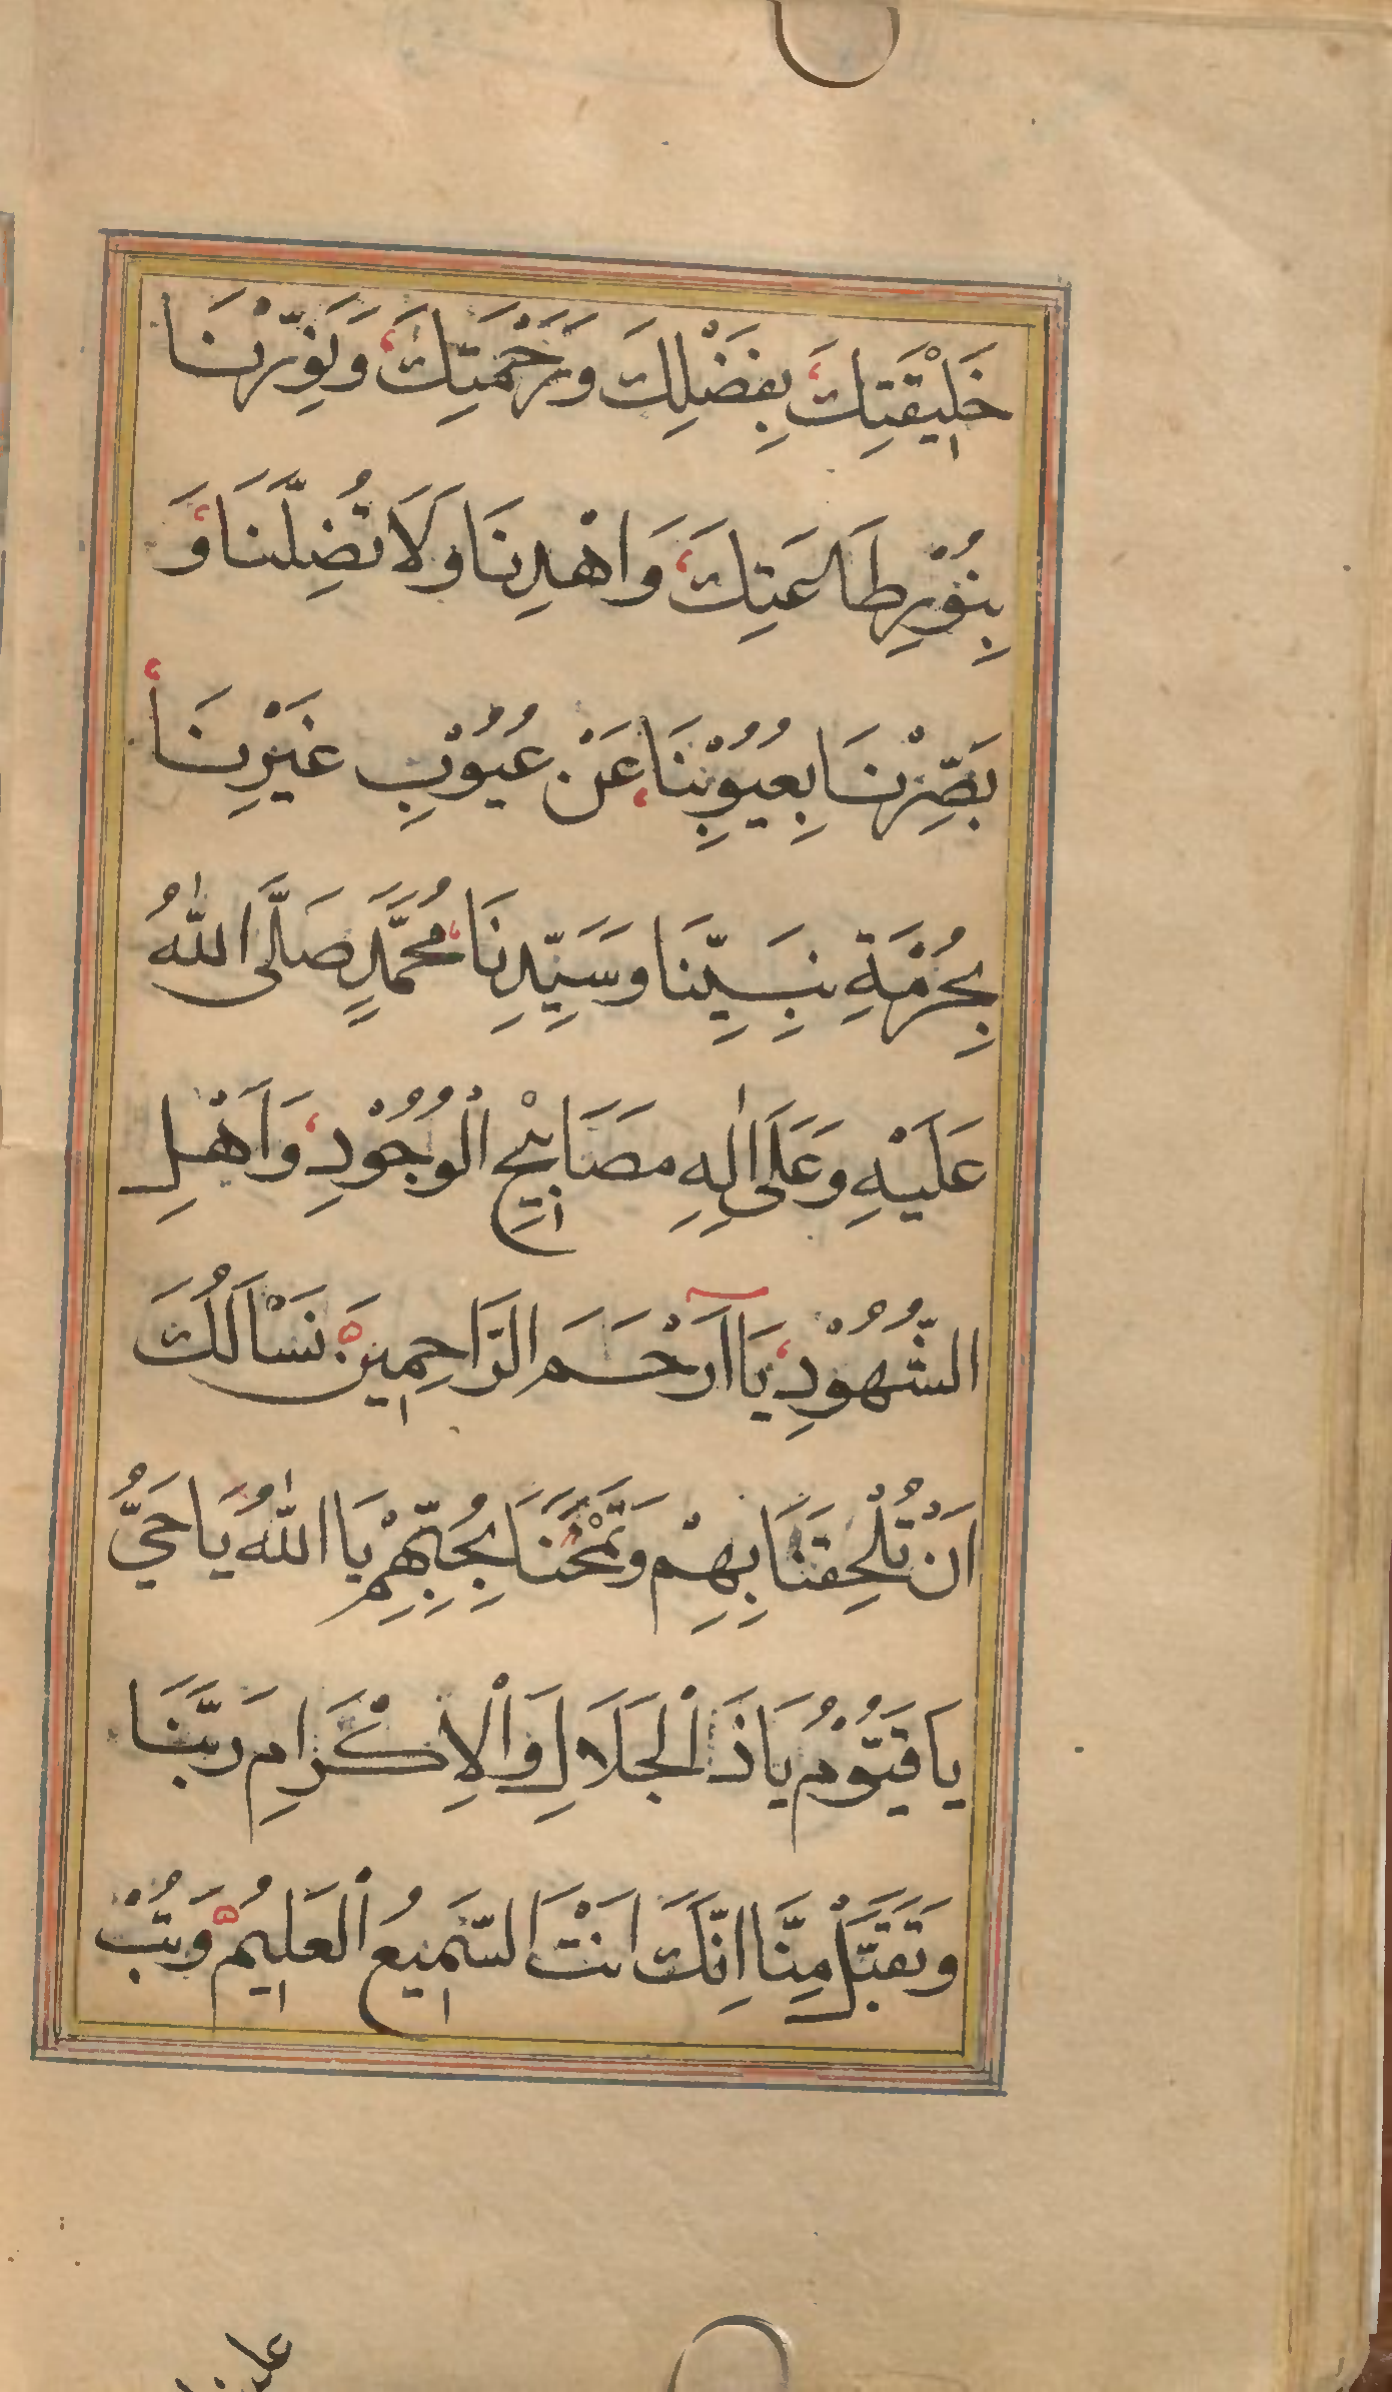 خَلِيْقَتِكَ بِفَضْلِكَ وَرَحْمَتِكَ وَنَوِّرْنَا
بِنُوْرِ طَاعَتِكَ وَاهْدِنَا وَلَا تُضِلَّنَا وَ
بَصِّرْنَا بِعُيُوْبِنَا عَنْ عُيُوْبِ غَيْرِنَا
بِحُرْمَةِ نَبِيِّنَا وَسَيِّدِنَا مُحَمَّدٍ صَلَّى اللّٰهُ
عَلَيْهِ وَعَلَى اٰلِهِ مَصَابِيْحِ الْوُجُوْدِ وَاَهْلِ
الشُّهُوْدِ يَا اَرْحَمَ الرَّاحِمِينَ نَسْاَلُكَ
اَنْ تُلْحِقَنَا بِهِمْ وَتَمْنَحَنَا بِحُبِّهِمْ يَا اللّٰهُ يَا حَيُّ
يَا قَيُّوْمُ يَا ذَا الْجَلَالِ وَالْاِكْرَامِ رَبَّنَا
وَتَقَبَّلْ مِنَّا اِنَّكَ اَنْتَ السَّمِيعُ الْعَلِيمُ وَتُبْ